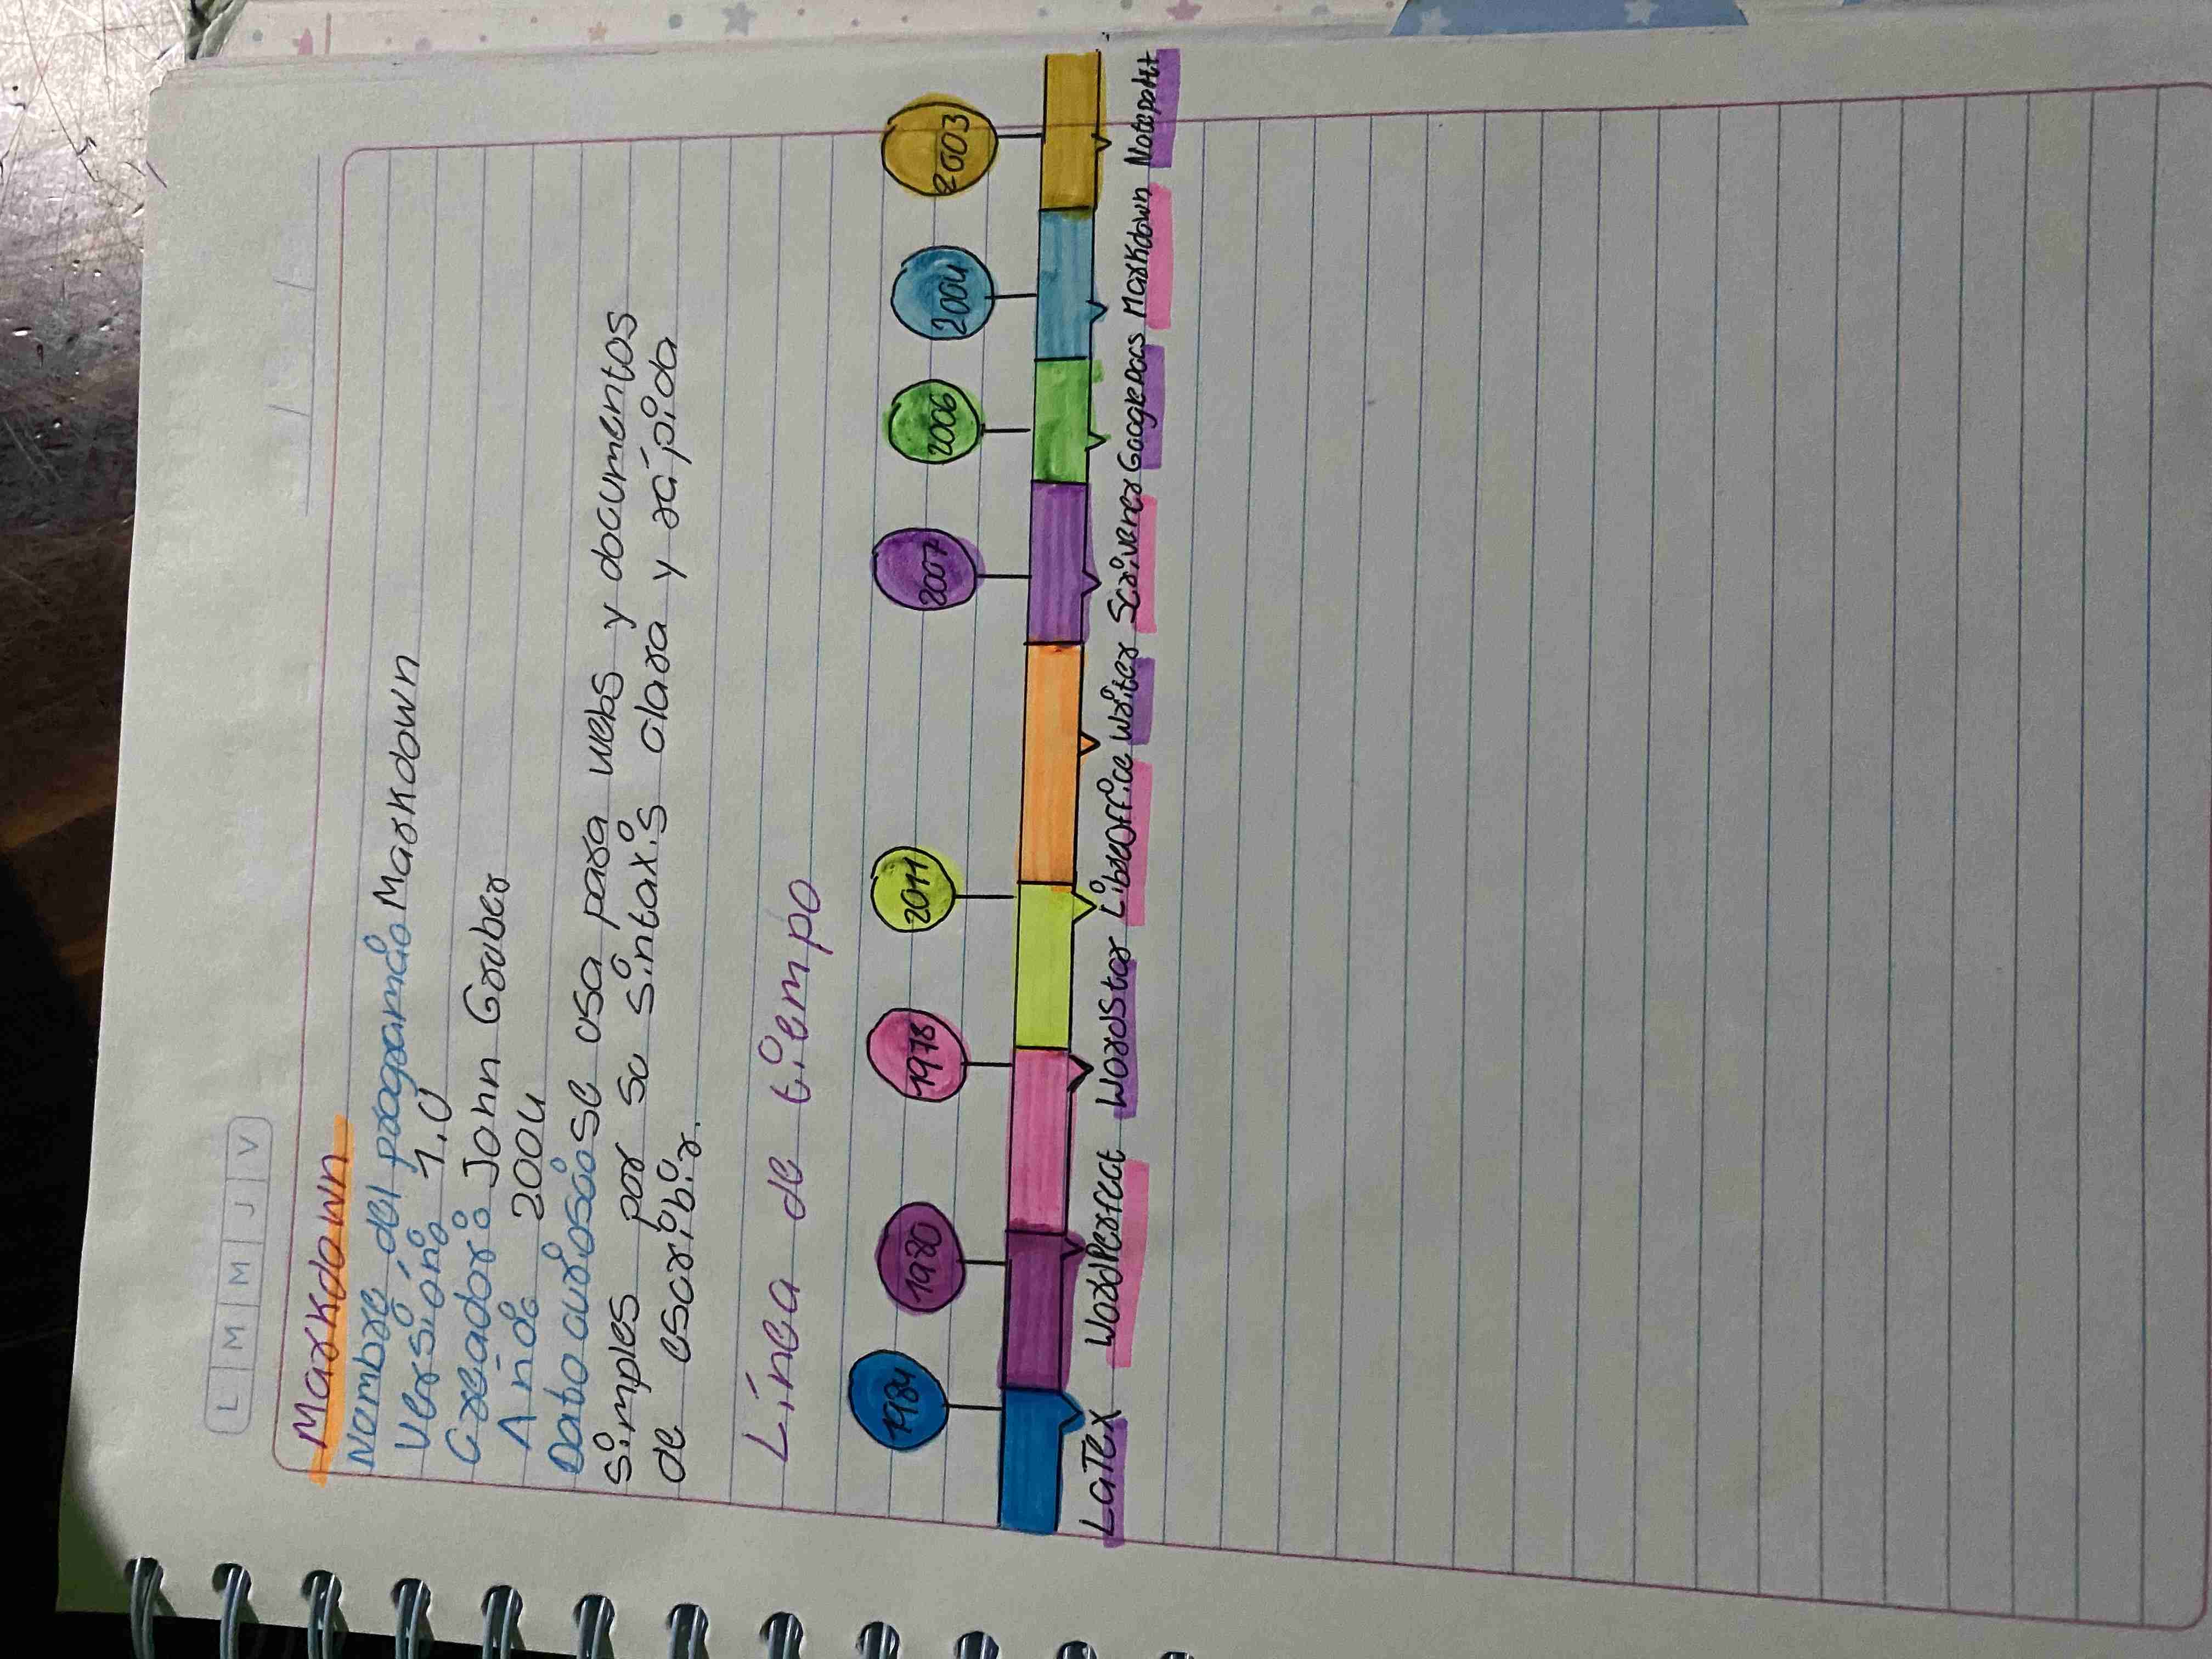 L M M J V
Markdown
Nombre del programa: Markdown
Versión: 1.0
Creador: John Gruber
Año: 2004
Dato curioso: se usa para webs y documentos
simples por su sintaxis clara y rápida
de escribir.
Línea de tiempo
1984 1980 1978 2011 2007 2006 2004 2003
LaTex WordPerfect WordStar LibreOffice Writer Scrivener Google Docs Markdown